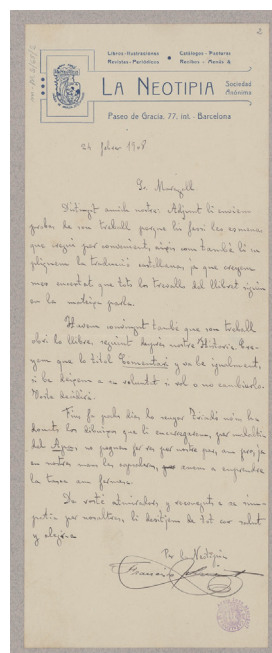 Libros-Ilustraciones
Revistas-Periódicos
Catálogos-Posturas
Recibos-Menús &
LA NEOTIPIA Sociedad Anónima
Paseo de Gracia, 77, int. - Barcelona
24 febrer 1908
Sr. Maragall.
Distingit amich nostre: Adjunt li enviem
probas de son treball perque hi fassi les esmenes
que cregui per convenient, aixís com també li su
pliquem la traducció castellana, ja que creyem
mes encertat que tots los treballs del llibret siguin
en la mateixa parla.
Havem convingut també que son treball
obri lo llibre, seguint després nostre Historia. Cre
yem que lo titol Comentari y va be igualment,
si be deixem a sa voluntat si vol o no cambiarlo.
Vostè decidirà.
Fins fa pocs dies lo senyor Triadó no'ns ha
donats los dibuixos que li encarregarem, per
del no poguem fer res per nostre part, ara pero, ja
en nostres mans los esperavem, anem a empendre
la tasca am fermesa.
De vostè admiradors y reconeguts a sa sim
patia per nosaltres, li desitjem de tot cor salut
y alegria
Per La Neotipia